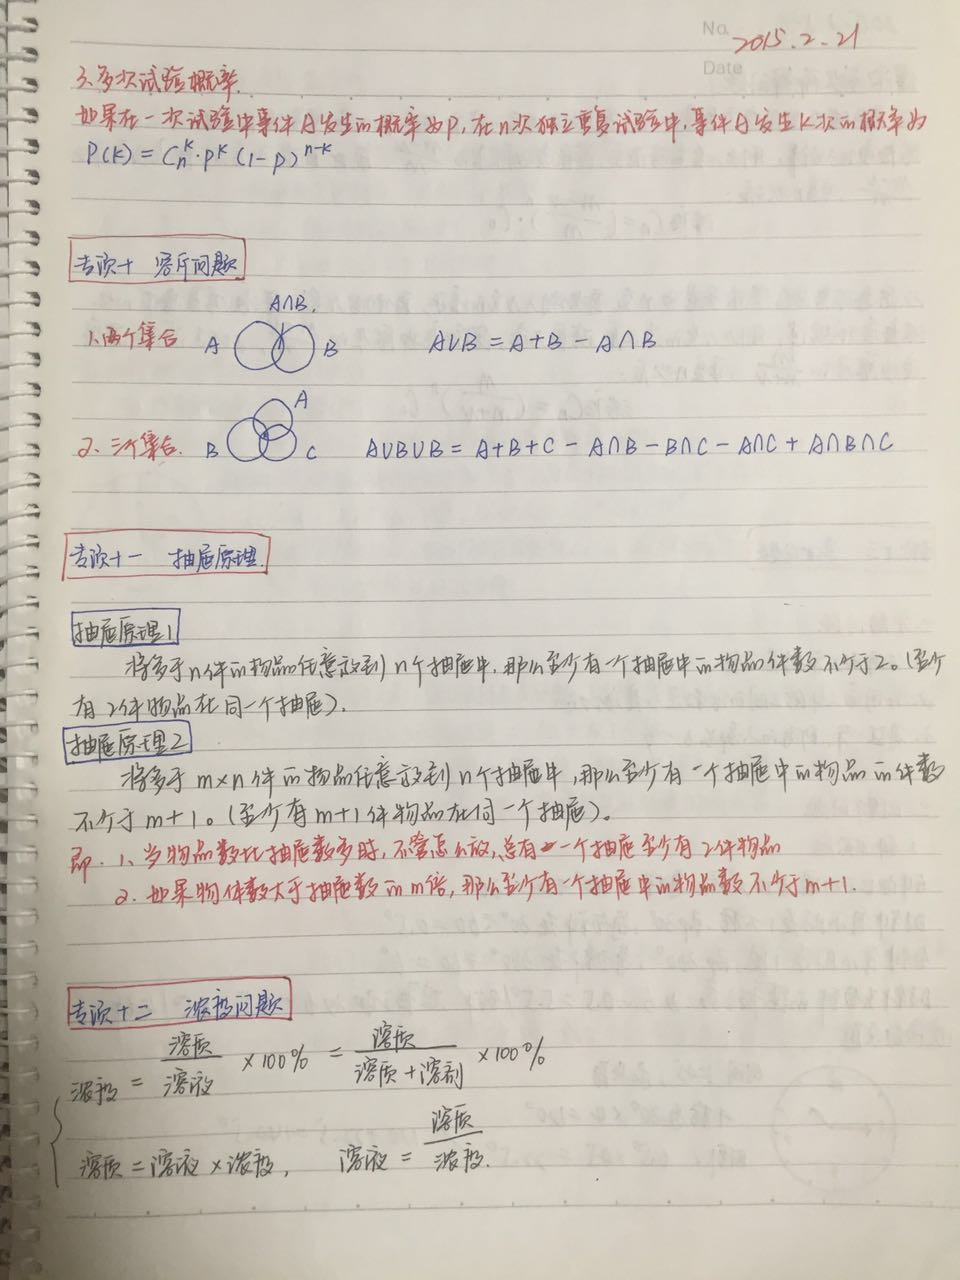 No. 2015.2.21
Date
3、多次试验概率.
如果在一次试验中事件A发生的概率为P,在n次独立重复试验中,事件A发生K次的概率为
P(K) = C_n^K·P^K (1-P)^{n-K}
专项十 容斥问题
A∩B.
1.两个集合 A B A∪B = A+B - A∩B
A
2、三个集合. B C A∪B∪B = A+B+C - A∩B - B∩C - A∩C + A∩B∩C
专项十一 抽屉原理.
抽屉原理1
将多于n件的物品任意放到n个抽屉中,那么至少有一个抽屉中的物品件数不少于2。(至少
有2件物品在同一个抽屉).
抽屉原理2
将多于m×n件的物品任意放到n个抽屉中,那么至少有一个抽屉中的物品的件数
不少于m+1。(至少有m+1件物品在同一个抽屉)。
即.1、当物品数比抽屉数多时,不管怎么放,总有一个抽屉至少有2件物品
2. 如果物体数大于抽屉数的m倍,那么至少有一个抽屉中的物品数不少于m+1.
专项十二 浓度问题
浓度 = 溶质/溶液 ×100% = 溶质/溶质+溶剂 ×100%
溶质=溶液×浓度, 溶液 = 溶质/浓度.